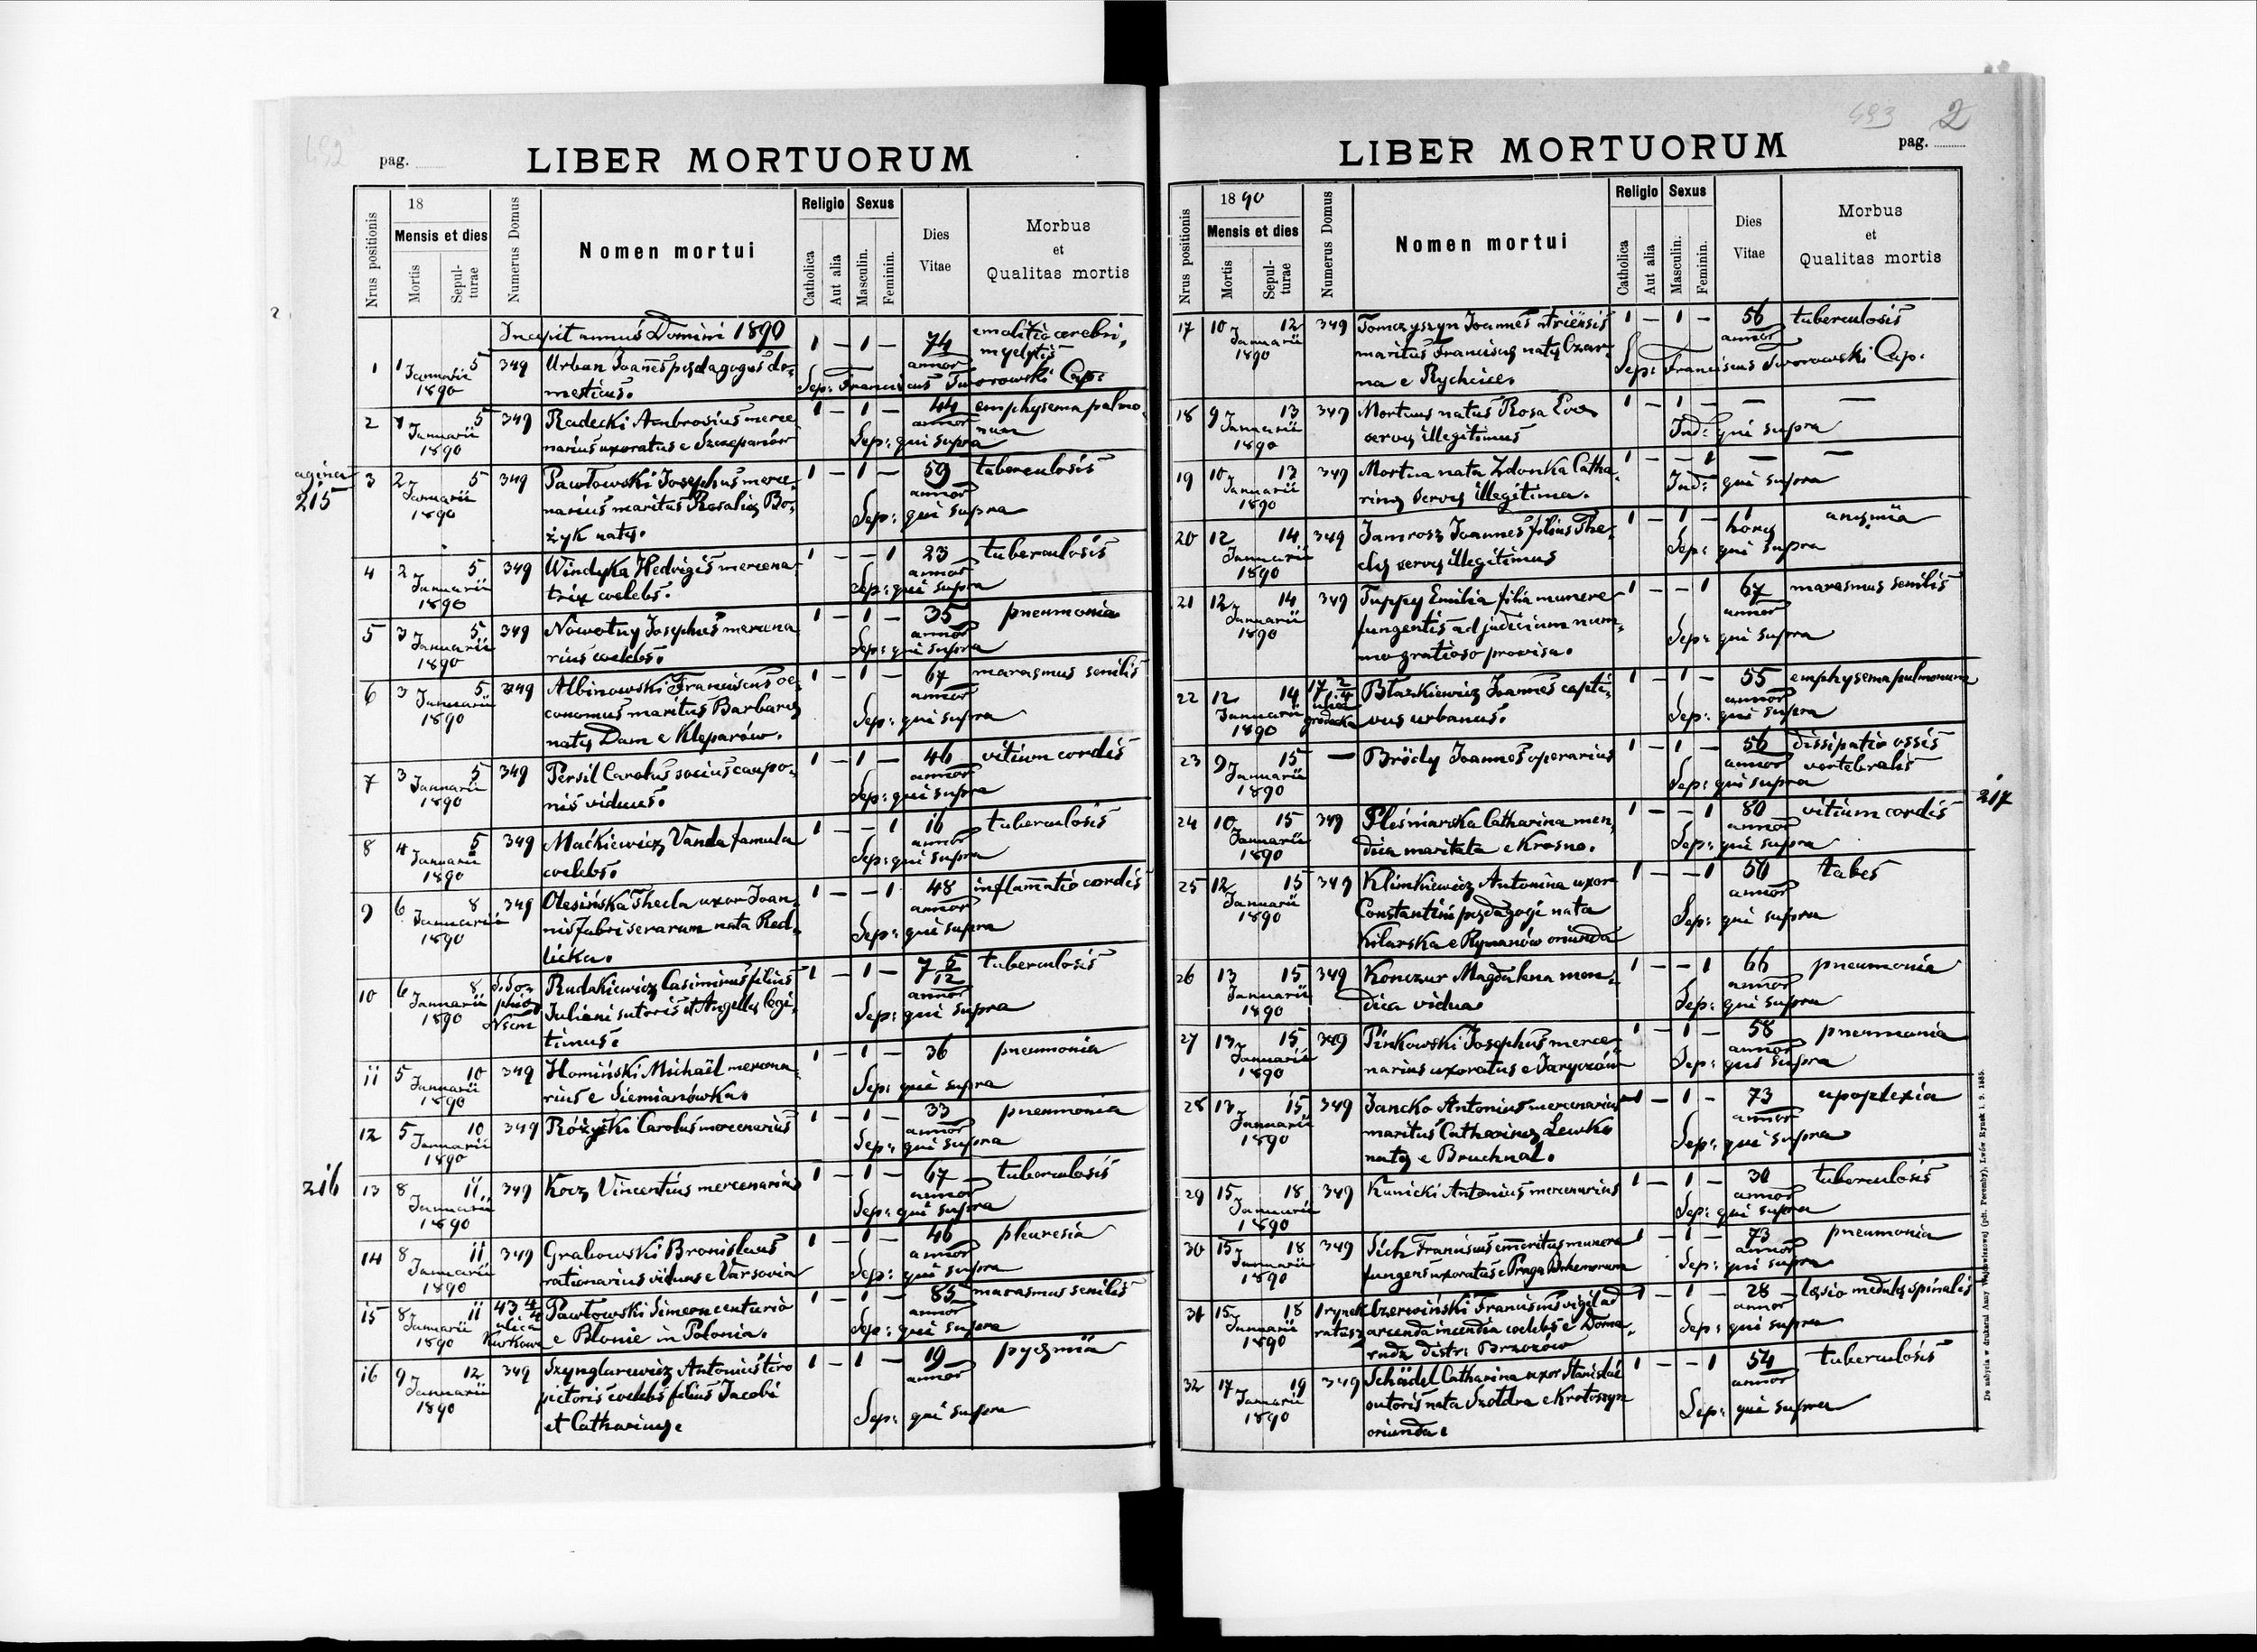 492
pag.
LIBER MORTUORUM
Nrus positionis
18
Mensis et dies
Mortis
Sepulturae
Numerus Domus
Nomen mortui
Religio
Catholica
Aut alia
Sexus
Masculin.
Feminin.
Dies
Vitae
Morbus
et
Qualitas mortis
Incepit annus Domini 1890
1 1 Januarii 1890 5 349 Urban Joannes pædagogus do-
mesticus.
1 — 1 — 74 annor emolitio cerebri,
myelytis
Sep: Franciscus Tworowski Cap:
2 1 Januarii 1890 5 349 Radecki Ambrosius merce
narius uxoratus e Szczepanów
1 — 1 — 44 annor emphysema pulmo
num
Sep: qui supra
pagina
215
3 2 Januarii 1890 5 349 Pawłowski Josephus merce-
narius maritus Rosaliæ Bo-
żyk natæ.
1 — 1 — 59 annor tuberculosis
Sep: qui supra
4 2 Januarii 1890 5 349 Windyka Hedvigis mercena
trix coelebs.
1 — — 1 23 annor tuberculosis
Sep: qui supra
5 3 Januarii 1890 5 349 Nowotny Josephus mercena
rius coelebs.
1 — 1 — 35 annor pneumonia
Sep: qui supra
6 3 Januarii 1890 5 349 Albinowski Franciscus oe-
conomus maritus Barbaræ
natæ Dam e Kleparów.
1 — 1 — 67 annor marasmus senilis
Sep: qui supra
7 3 Januarii 1890 5 349 Persil Carolus socius caupo-
nis viduus.
1 — 1 — 46 annor vitium cordis
Sep: qui supra
8 4 Januarii 1890 5 349 Maćkiewicz Vanda famula
coelebs.
1 — — 1 16 annor tuberculosis
Sep: qui supra
9 6 Januarii 1890 8 349 Olesińska Thecla uxor Joan-
nis fabri serarum nata Red-
licka.
1 — — 1 48 annor inflammatio cordis
Sep: qui supra
10 6 Januarii 1890 8 Rudakiewicz Casimirus filius
Juliani sutoris et Angellæ legi-
timus.
1 — 1 — 7 5/12 annor tuberculosis
Sep: qui supra
11 5 Januarii 1890 10 349 Homiński Michaël mercena
rius e Siemianówka.
1 — 1 — 36 pneumonia
Sep: qui supra
12 5 Januarii 1890 10 349 Różycki Carolus mercenarius
1 — 1 — 33 annor pneumonia
Sep: qui supra
216
13 8 Januarii 1890 11 349 Kocz Vincentius mercenarius
1 — 1 — 67 annor tuberculosis
Sep: qui supra
14 8 Januarii 1890 11 349 Grabowski Bronislaus
rationarius viduus e Varsovia
1 — 1 — 46 annor pleuresia
Sep: qui supra
15 8 Januarii 1890 11 43 4/4 ulica Kurkowa Pawłowski Simeon centurio
e Błonie in Polonia.
1 — 1 — 85 annor marasmus senilis
Sep: qui supra
16 9 Januarii 1890 12 349 Szynglarewicz Antonius tiro
pictoris coelebs filius Jacobi
et Catharinæ.
1 — 1 — 19 annor pyæmia
Sep: qui supra
493 2
pag.
LIBER MORTUORUM
Nrus positionis
1890
Mensis et dies
Mortis
Sepulturae
Numerus Domus
Nomen mortui
Religio
Catholica
Aut alia
Sexus
Masculin.
Feminin.
Dies
Vitae
Morbus
et
Qualitas mortis
17 10 Januarii 1890 12 349 Tomczyszyn Joannes atriensis
maritus Franciscæ natæ Czar-
na e Rychcice.
1 — 1 — 56 annor tuberculosis
Sep: Franciscus Tworowski Cap:
18 9 Januarii 1890 13 349 Mortuus natus Rosa Eva
servæ illegitimus
1 — 1 — — —
Ind: qui supra
19 10 Januarii 1890 13 349 Mortua nata Zdonka Catha-
rinæ servæ illegitima.
1 — — 1 — —
Ind: qui supra
20 12 Januarii 1890 14 349 Jamrosz Joannes filius The-
clæ servæ illegitimus
1 — 1 — 1 horæ anæmia
Sep: qui supra
21 12 Januarii 1890 14 349 Tuppy Emilia filia munere
fungentis ad judicium num-
mo gratioso provisa.
1 — — 1 67 annor marasmus senilis
Sep: qui supra
22 12 Januarii 1890 14 17 2/4 ulica gródecka Błażkiewicz Joannes capti-
vus urbanus.
1 — 1 — 55 annor emphysema pulmonum
Sep: qui supra
23 9 Januarii 1890 15 — Bródy Joannes operarius
1 — 1 — 56 annor dissipatio ossis
vertebralis
Sep: qui supra
217
24 10 Januarii 1890 15 349 Pleśniarska Catharina men-
dica maritata e Krosno.
1 — — 1 80 annor vitium cordis
Sep: qui supra
25 12 Januarii 1890 15 349 Klimkiewicz Antonina uxor
Constantini pædagogi nata
Kilarska e Rymanów oriunda
1 — — 1 50 annor tabes
Sep: qui supra
26 13 Januarii 1890 15 349 Konczur Magdalena men-
dica vidua
1 — — 1 66 annor pneumonia
Sep: qui supra
27 13 Januarii 1890 15 349 Pinkowski Josephus merce-
narius uxoratus e Jaryczów
1 — 1 — 58 annor pneumonia
Sep: qui supra
28 13 Januarii 1890 15 349 Jancko Antonius mercenarius
maritus Catharinæ Lewko
natæ e Bruchnal.
1 — 1 — 73 annor apoplexia
Sep: qui supra
29 15 Januarii 1890 18 349 Kunicki Antonius mercenarius
1 — 1 — 30 annor tuberculosis
Sep: qui supra
30 15 Januarii 1890 18 349 Sich Franciscus emeritus munere
fungens uxoratus e Praga Bohemorum
1 — 1 — 73 annor pneumonia
Sep: qui supra
31 15 Januarii 1890 18 1 rynek ratusz Czerwiński Franciscus vigil ad
arcenda incendia coelebs e Doma-
radz distr: Brzozów
1 — 1 — 28 annor læsio medulæ spinalis
Sep: qui supra
32 17 Januarii 1890 19 349 Schädel Catharina uxor Stanislai
sutoris nata Szoldra e Krotoszyn
oriunda.
1 — — 1 54 annor tuberculosis
Sep: qui supra
Do nabycia w drukarni Anny Wajdowiczowej (pdt. Poremby), Lwów Rynek l. 9. 1885.